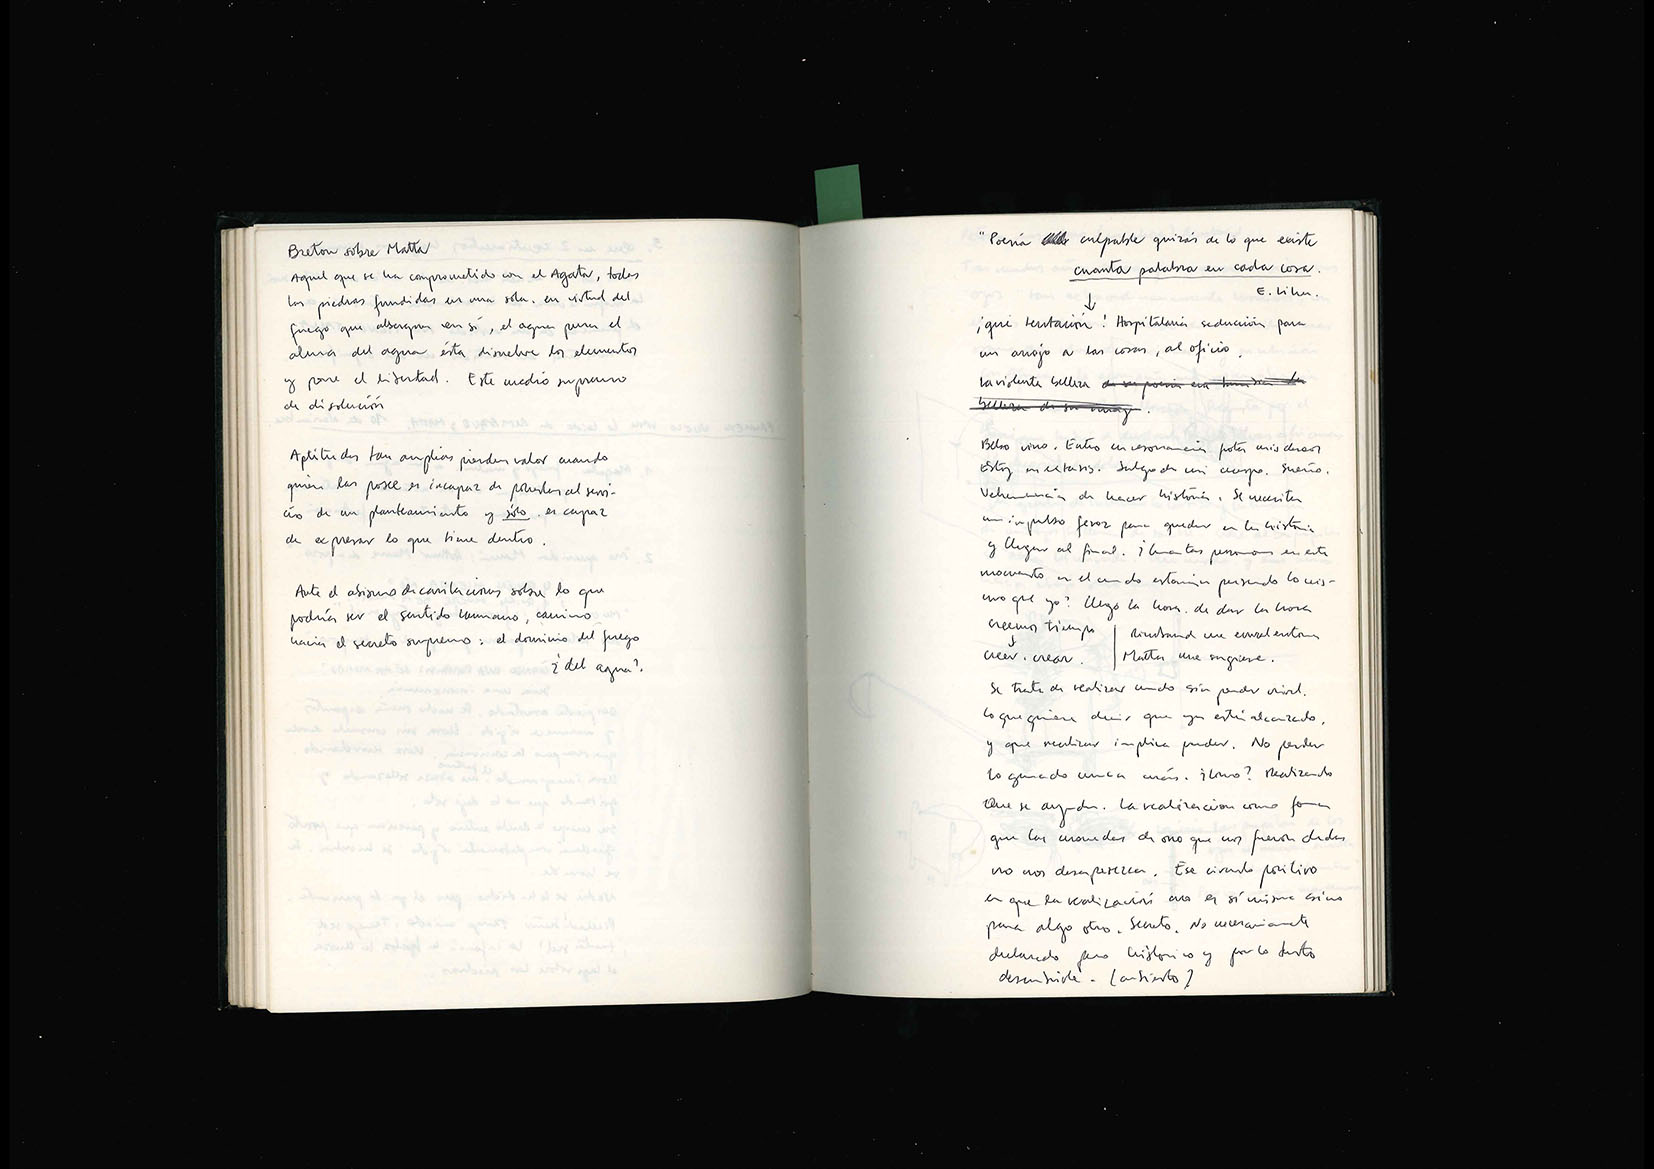 Breton sobre Matta
Aquel que se ha comprometido con el Agata, todas
las piedras fundidas en una sola. en virtud del
fuego que absorben en sí, el agua pura el
alma del agua ésta disuelve los elementos
y pone el libertad. Este medio supremo
de disolución
Aptitudes tan amplias pierden valor cuando
quien las posee es incapaz de ponerlas al servi-
cio de un planteamiento y sólo es capaz
de expresar lo que tiene dentro.
Ante el abismo de cavilaciones sobre lo que
podría ser el sentido humano, camino
hacia el secreto supremo: el dominio del fuego
¿del agua?.
"Poesía culpable quizás de lo que existe
cuanta palabra en cada cosa.
E. Lihn.
↓
¡qué tentación! Hospitalaria seducción para
un arrojo a las cosas, al oficio.
La violenta belleza de su poesía era también la
belleza de su
Bebo vino. Entro en resonancia
Estoy en extasis. Salgo de mi cuerpo. Sueño.
Vehemencia de hacer historia. Se necesita
un impulso feroz para quedar en la historia
y llegar al final. ¿Cuantas personas en este
momento en el mundo estarían pensando lo mis-
mo que yo? Llegó la hora de dar la hora
creemos tiempo
↓
creer. crear.
Rimbaud me
Matta me sugiere.
Se trata de realizar cuando aún perder nivel.
Lo que quiere decir que ya está alcanzado,
y que realizar implica perder. No perder
lo ganado nunca más. ¿Cómo? Realizando
Que se La realización como forma
que las monedas de oro que nos fueron dadas
no nos desaparezcan. Ese círculo positivo
en que la realización no es sí misma sino
para algo otro. Secreto. No necesariamente
declarado pero histórico y por lo tanto